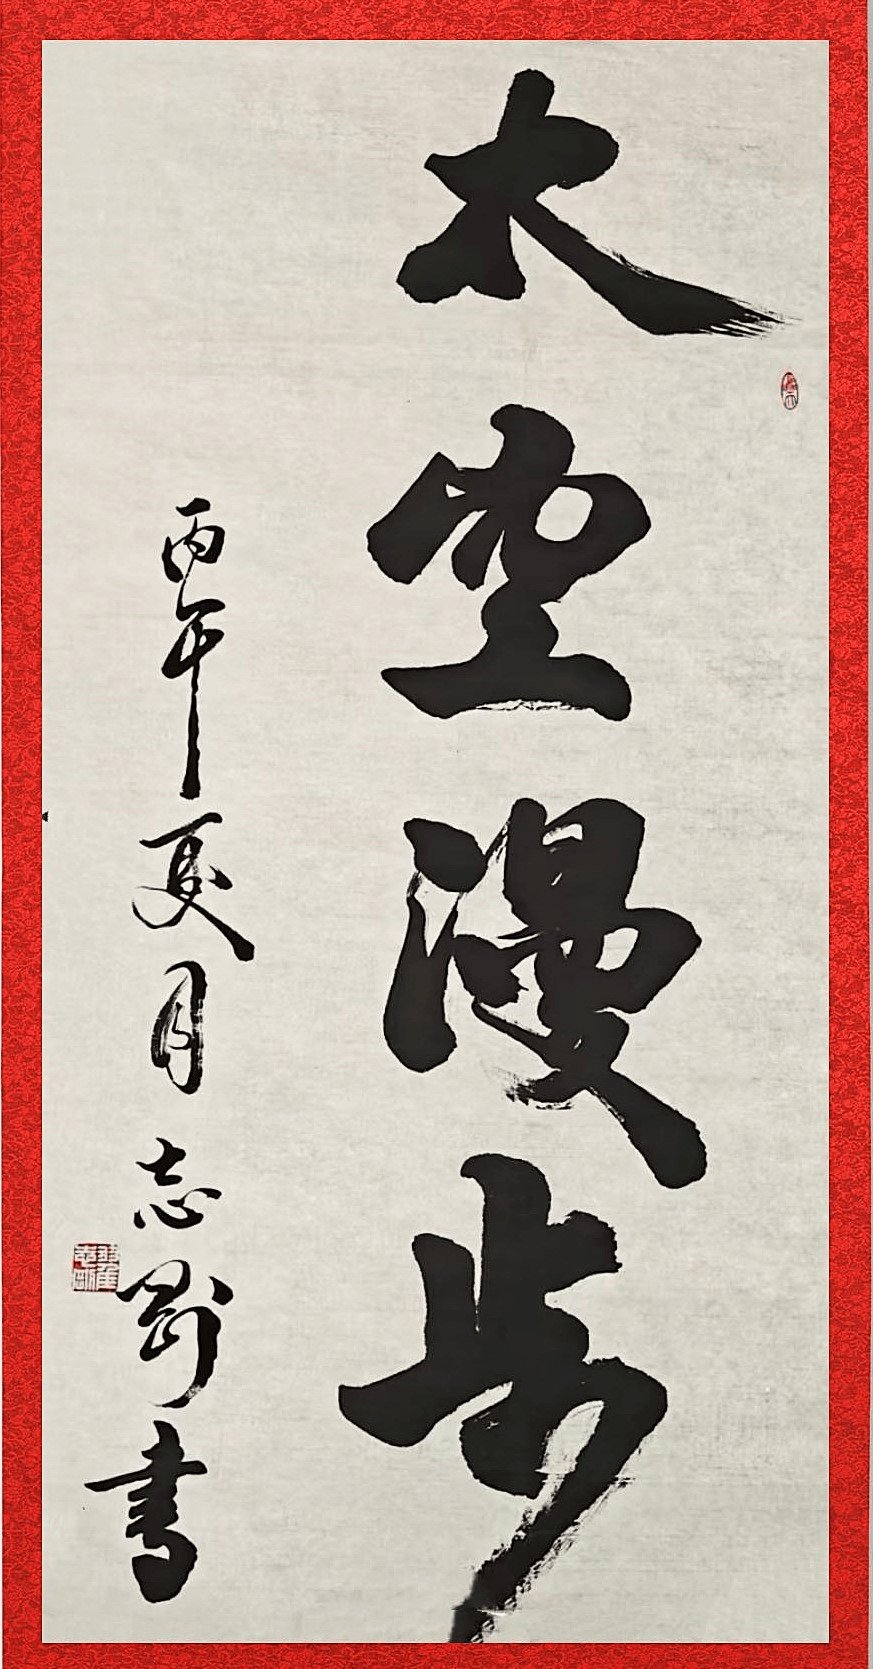 太空漫步
丙午夏月志剛書